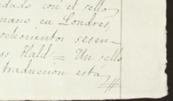 dado con el sello
mano en Londres
ochocientos sesen-
Hald = Un sello
traduccion esta